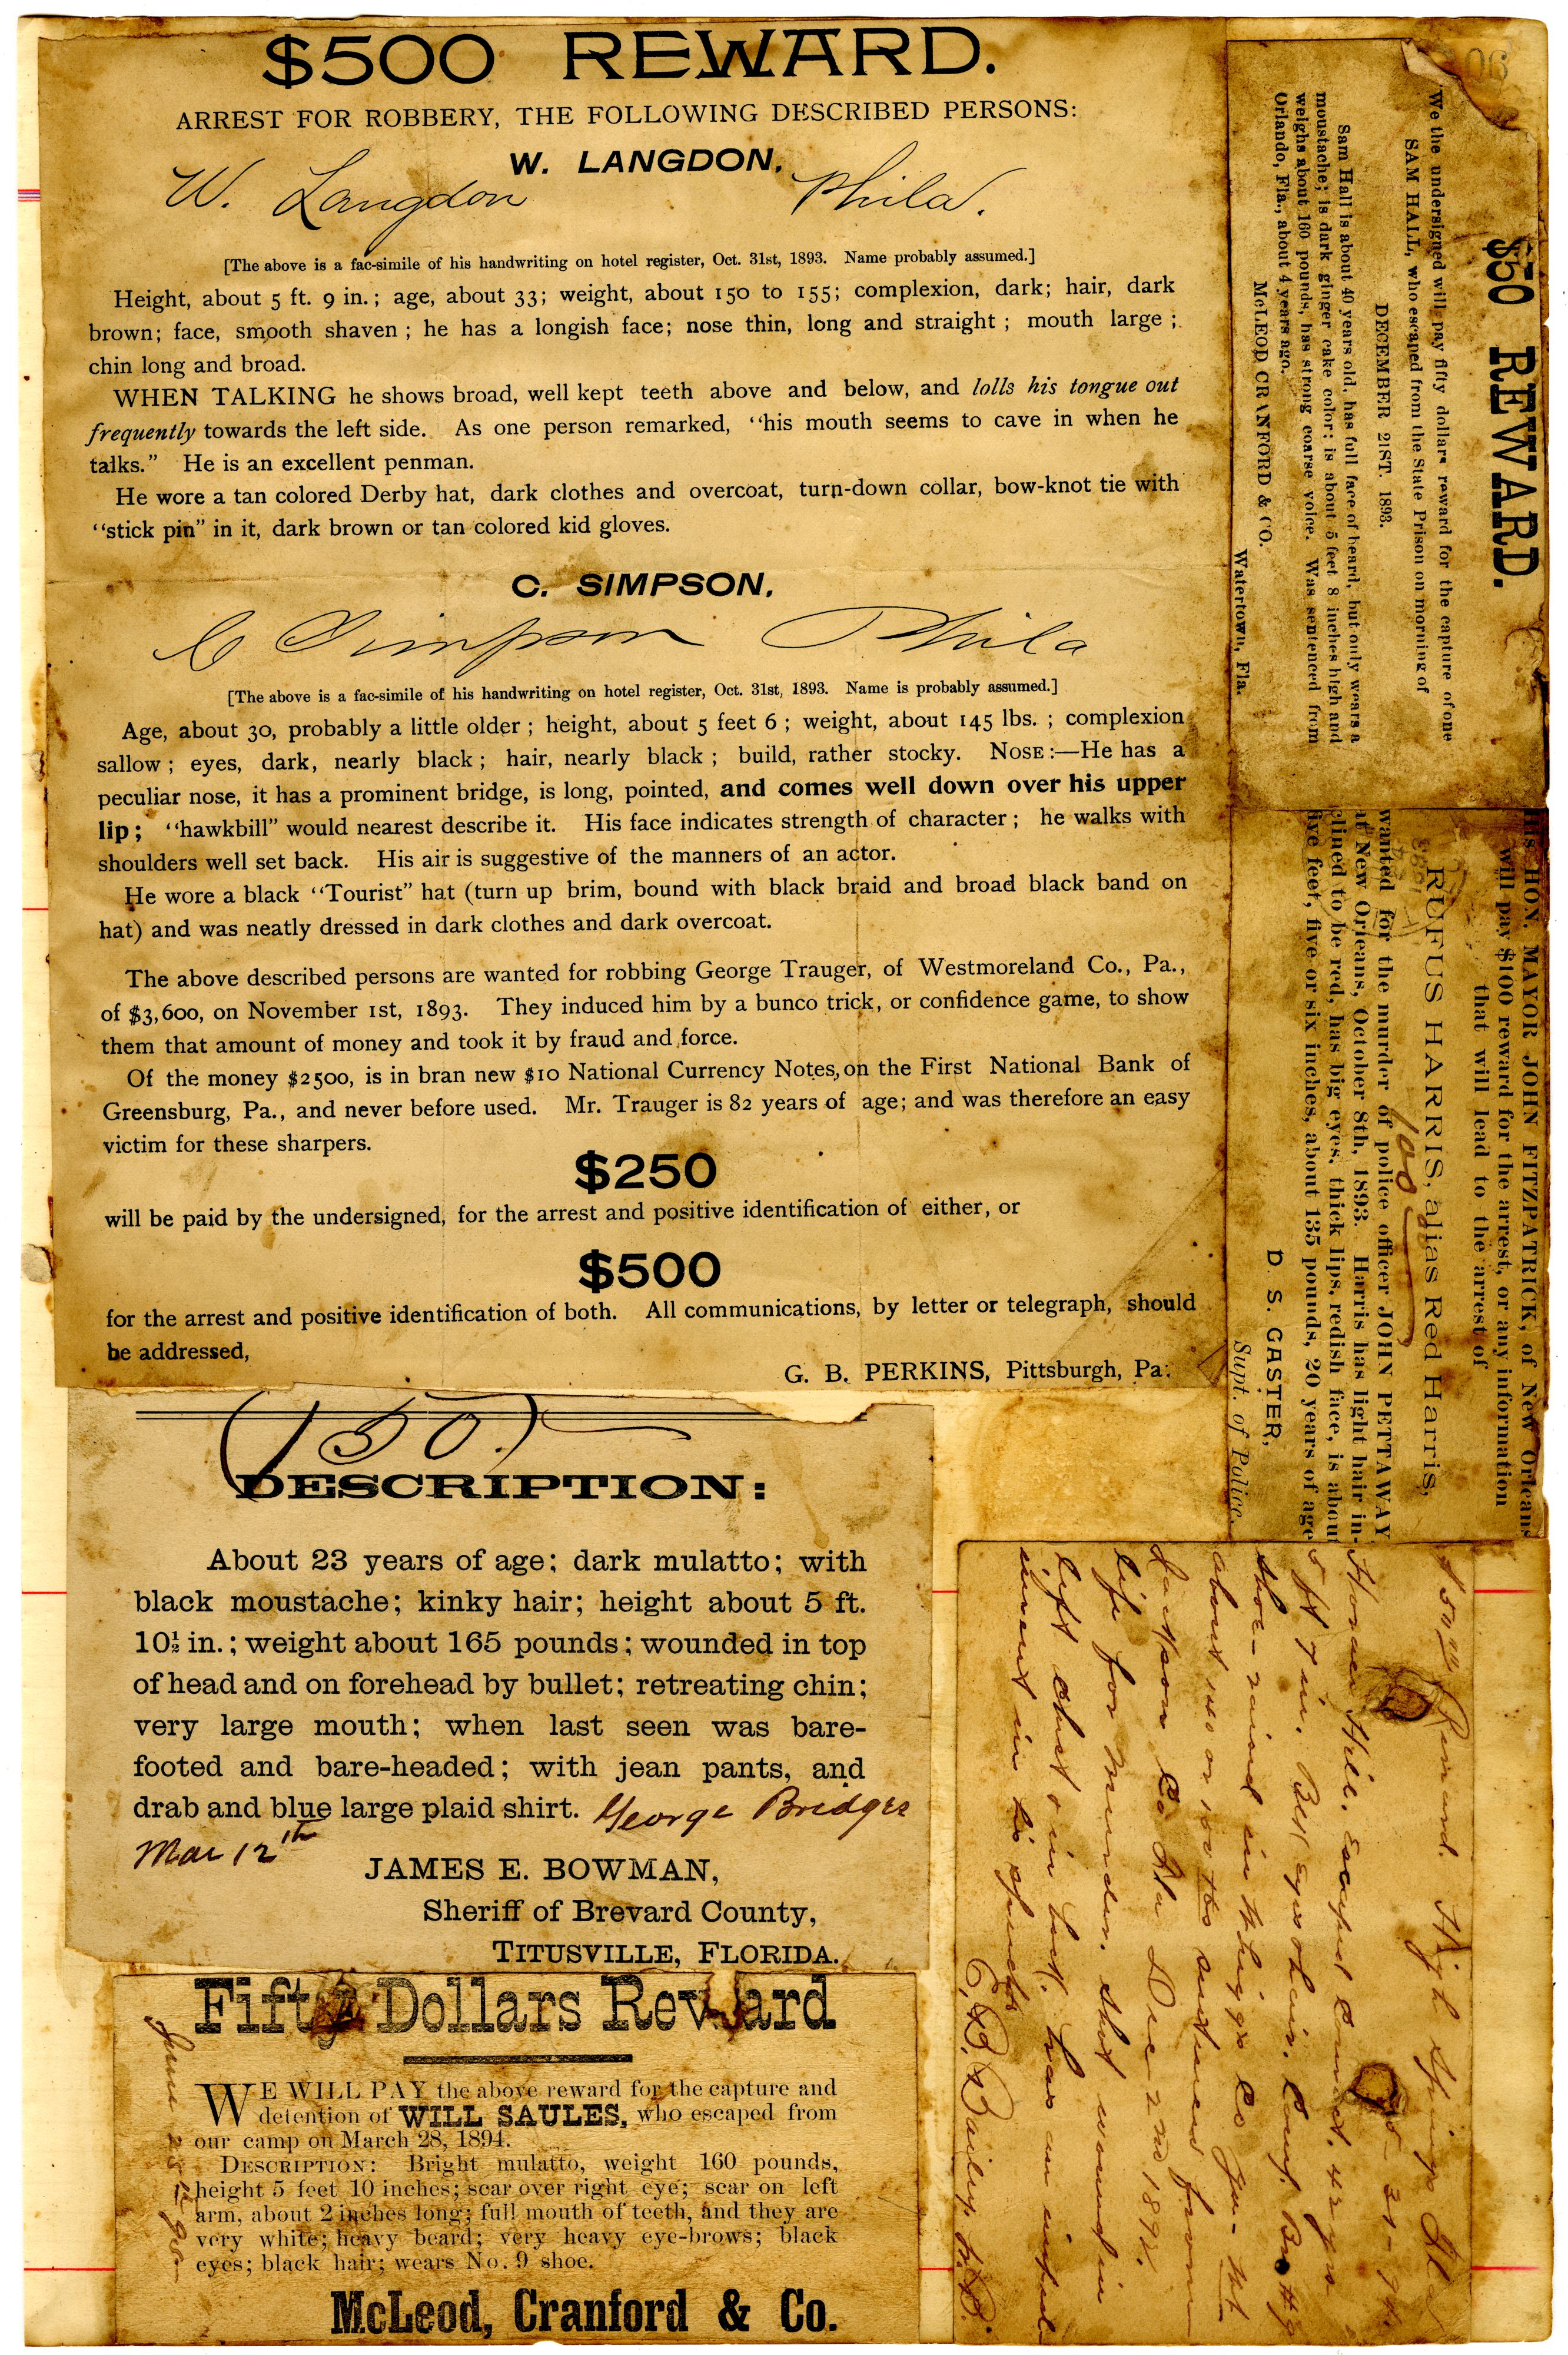 $500 REWARD.
ARREST FOR ROBBERY, THE FOLLOWING DESCRIBED PERSONS:
W. LANGDON,
W. Langdon Phila.
[The above is a fac-simile of his handwriting on hotel register, Oct. 31st, 1893. Name probably assumed.]
Height, about 5 ft. 9 in.; age, about 33; weight, about 150 to 155; complexion, dark; hair, dark
brown; face, smooth shaven; he has a longish face; nose thin, long and straight; mouth large;
chin long and broad.
WHEN TALKING he shows broad, well kept teeth above and below, and lolls his tongue out
frequently towards the left side. As one person remarked, "his mouth seems to cave in when he
talks." He is an excellent penman.
He wore a tan colored Derby hat, dark clothes and overcoat, turn-down collar, bow-knot tie with
"stick pin" in it, dark brown or tan colored kid gloves.
C. SIMPSON,
C Simpson Phila
[The above is a fac-simile of his handwriting on hotel register, Oct. 31st, 1893. Name is probably assumed.]
Age, about 30, probably a little older; height, about 5 feet 6; weight, about 145 lbs.; complexion
sallow; eyes, dark, nearly black; hair, nearly black; build, rather stocky. NOSE:—He has a
peculiar nose, it has a prominent bridge, is long, pointed, and comes well down over his upper
lip; "hawkbill" would nearest describe it. His face indicates strength of character; he walks with
shoulders well set back. His air is suggestive of the manners of an actor.
He wore a black "Tourist" hat (turn up brim, bound with black braid and broad black band on
hat) and was neatly dressed in dark clothes and dark overcoat.
The above described persons are wanted for robbing George Trauger, of Westmoreland Co., Pa.,
of $3,600, on November 1st, 1893. They induced him by a bunco trick, or confidence game, to show
them that amount of money and took it by fraud and force.
Of the money $2500, is in bran new $10 National Currency Notes, on the First National Bank of
Greensburg, Pa., and never before used. Mr. Trauger is 82 years of age; and was therefore an easy
victim for these sharpers.
$250
will be paid by the undersigned, for the arrest and positive identification of either, or
$500
for the arrest and positive identification of both. All communications, by letter or telegraph, should
be addressed,
G. B. PERKINS, Pittsburgh, Pa.
06
$50 REWARD.
We the undersigned will pay fifty dollars reward for the capture of one
SAM HALL, who escaped from the State Prison on morning of
DECEMBER 21ST. 1893.
Sam Hall is about 40 years old, has full face of beard, but only wears a
moustache; is dark ginger cake color; is about 5 feet 8 inches high and
weighs about 160 pounds, has strong coarse voice. Was sentenced from
Orlando, Fla., about 4 years ago.
McLEOD CRANFORD & CO.
Watertown, Fla.
His HON. MAYOR JOHN FITZPATRICK, of New Orleans
will pay $100 reward for the arrest, or any information
that will lead to the arrest of
RUFUS HARRIS, alias Red Harris,
100
wanted for the murder of police officer JOHN PETTAWAY
at New Orleans, October 8th, 1893. Harris has light hair in-
clined to be red, has big eyes, thick lips, redish face, is about
five feet, five or six inches, about 135 pounds, 20 years of age
D. S. GASTER,
Supt. of Police.
(150.)
DESCRIPTION:
About 23 years of age; dark mulatto; with
black moustache; kinky hair; height about 5 ft.
10½ in.; weight about 165 pounds; wounded in top
of head and on forehead by bullet; retreating chin;
very large mouth; when last seen was bare-
footed and bare-headed; with jean pants, and
drab and blue large plaid shirt. George Bridges
Mar 12th
JAMES E. BOWMAN,
Sheriff of Brevard County,
TITUSVILLE, FLORIDA.
Fifty Dollars Reward
WE WILL PAY the above reward for the capture and
detention of WILL SAULES, who escaped from
our camp on March 28, 1894.
DESCRIPTION: Bright mulatto, weight 160 pounds,
height 5 feet 10 inches; scar over right eye; scar on left
arm, about 2 inches long; full mouth of teeth, and they are
very white; heavy beard; very heavy eye-brows; black
eyes; black hair; wears No. 9 shoe.
McLeod, Cranford & Co.
June
Reward. High Springs Fla
Horace Hill. Escaped Convict. 42 yrs
5 ft 7 in. Blk eyes & hair. Comp. Bro #9
shoe - raised in
about 140 or 160 lbs sentenced from
Jackson Co Fla Dec 2nd 1892.
life for murder. shot wound in
left chest & in back. has an impedi
ment in his speech